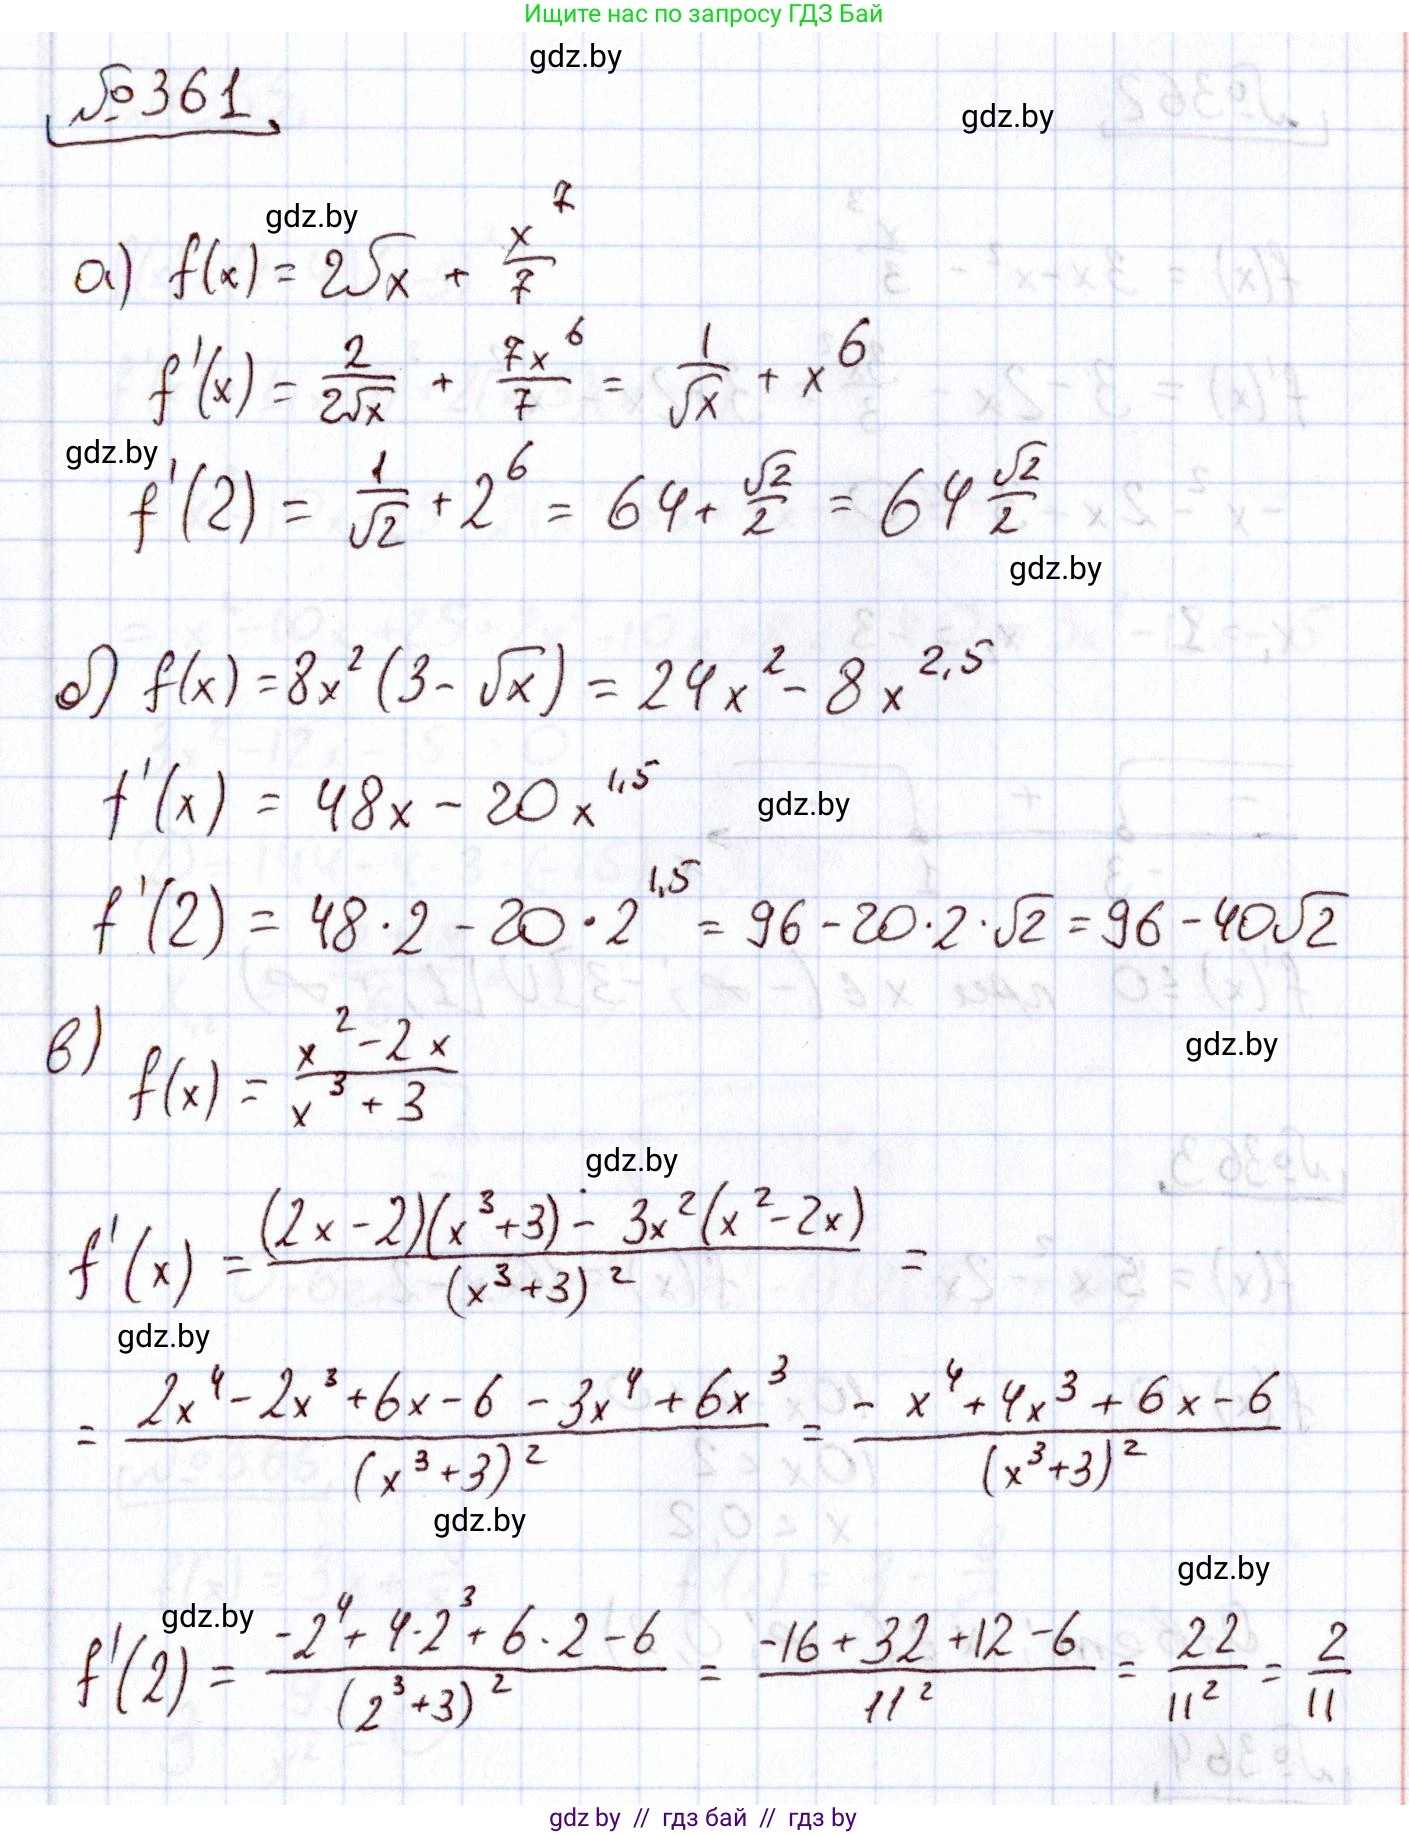 Ищите нас по запросу ГДЗ Бай
gdz.by
№361
gdz.by
gdz.by
а) f(x) = 2√x + x^7/7
f'(x) = 2/(2√x) + 7x^6/7 = 1/√x + x^6
gdz.by
f'(2) = 1/√2 + 2^6 = 64 + √2/2 = 64 √2/2
gdz.by
б) f(x) = 8x^2 (3 - √x) = 24x^2 - 8x^2,5
f'(x) = 48x - 20x^1,5
gdz.by
f'(2) = 48·2 - 20·2^1,5 = 96 - 20·2·√2 = 96 - 40√2
в) f(x) = (x^2 - 2x)/(x^3 + 3)
gdz.by
gdz.by
f'(x) = ((2x - 2)(x^3 + 3) - 3x^2(x^2 - 2x))/(x^3 + 3)^2 =
gdz.by
= (2x^4 - 2x^3 + 6x - 6 - 3x^4 + 6x^3)/(x^3 + 3)^2 = (-x^4 + 4x^3 + 6x - 6)/(x^3 + 3)^2
gdz.by
gdz.by
gdz.by
f'(2) = (-2^4 + 4·2^3 + 6·2 - 6)/(2^3 + 3)^2 = (-16 + 32 + 12 - 6)/11^2 = 22/11^2 = 2/11
gdz.by // гдз бай // гдз by